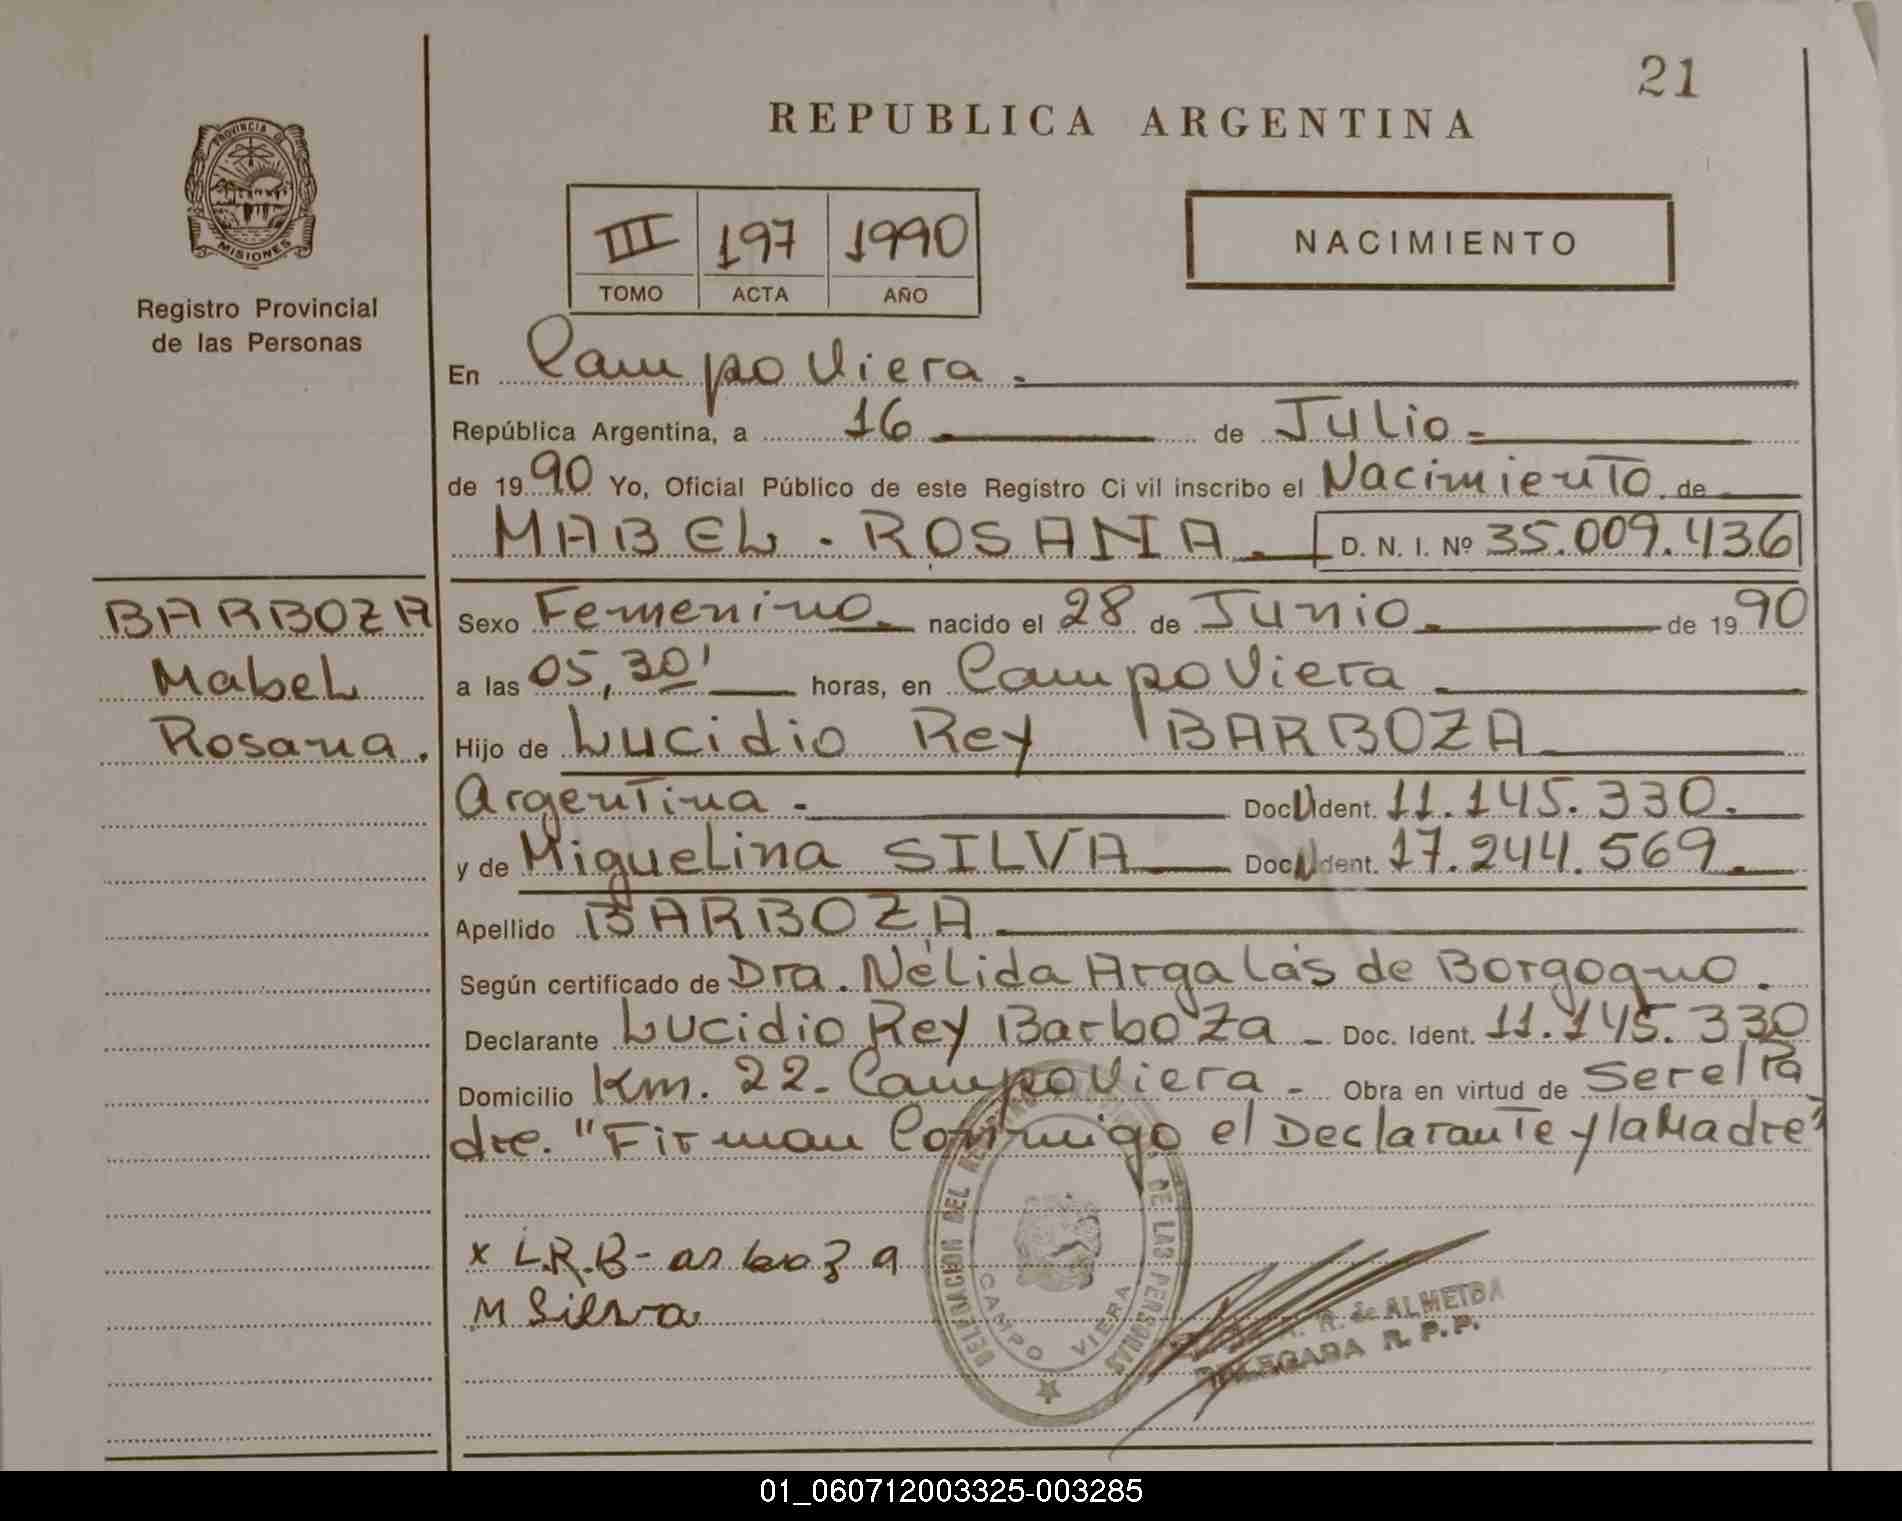 21
REPUBLICA ARGENTINA
PROVINCIA DE
MISIONES
Registro Provincial
de las Personas
III 197 1990
TOMO ACTA AÑO
NACIMIENTO
En Campo Viera.
República Argentina, a 16 de Julio.
de 1990 Yo, Oficial Público de este Registro Ci vil inscribo el Nacimiento de
MABEL . ROSANA. D. N. I. Nº 35.009.436
BARBOZA
Mabel
Rosana.
Sexo Femenino. nacido el 28 de Junio. de 1990
a las 05,30' horas, en Campo Viera
Hijo de Lucidio Rey BARBOZA
Argentina. Doc N Ident. 11.145.330.
y de Miguelina SILVA Doc N Ident. 17.244.569.
Apellido BARBOZA
Según certificado de Dra. Nélida Argalás de Borgogno.
Declarante Lucidio Rey Barboza - Doc. Ident. 11.145.330
Domicilio Km. 22- Campo Viera - Obra en virtud de Ser el Pa
dre. "Firman Conmigo el Declarante y la Madre"
x L.R.B-arboza
M Silva
DELEGACION DEL REGISTRO DE LAS PERSONAS
CAMPO VIERA
R. de ALMEIDA
DELEGADA R. P. P.
01_060712003325-003285